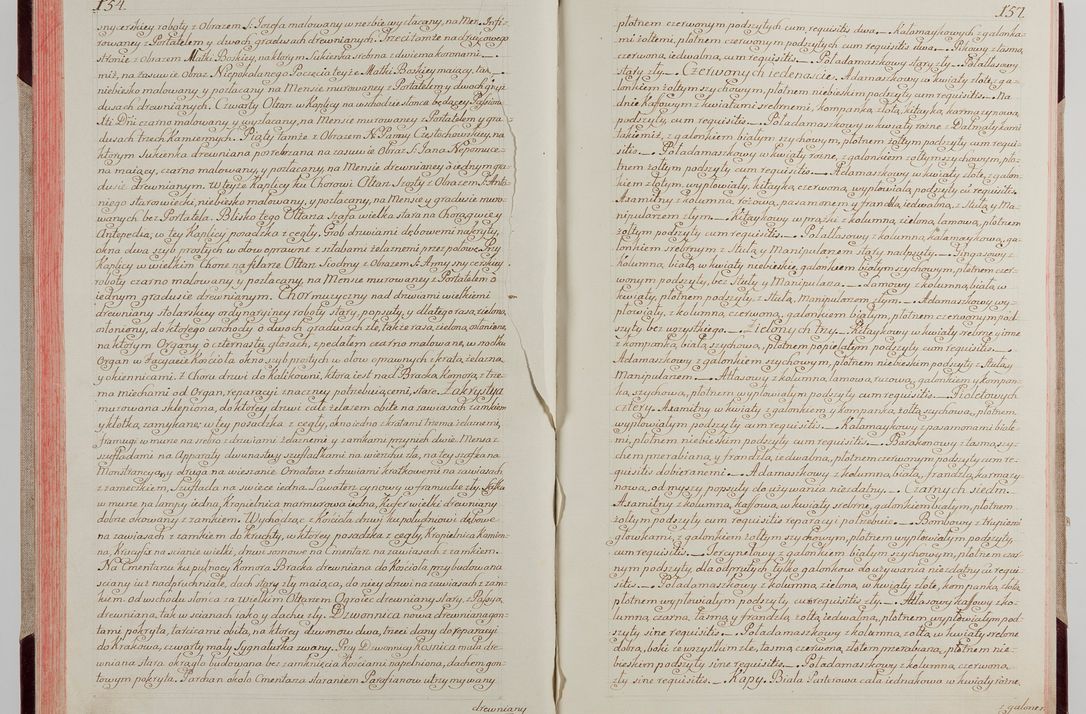 154.
snycerskiey roboty z Obrazem S. Jozefa malowany w rezbie wyzłacany, na Men: Infi:
rowaney z Portatelem y dwoch gradusach drewnianych. Trzeci tamże na drugiey
stronie z Obrazem Matki Boskiey, na ktorym Sukienka srebrna z dwiema koronami
miż, na zasuwie Obraz Niepokalanego Poczęcia teyże Matki Boskiey maiący, tak
niebiesko malowany y pozłacany na Mensie murowaney z Portatelem y dwoch gra:
dusach drewnianych. Czwarty Ołtarz w Kaplicy na wschodzie słonca będącey Passionis
Xti Dñi czarno malowany y wyzłacany, na Mensie murowaney z Portatelem y gra:
dusach trzech Kamiennych. Piąty tamże z Obrazem N. Panny Częstochowskiey, na
ktorym Sukienka drewniana posrebrzana na zasuwie Obraz S. Jana Nepomuce:
na maiący, czarno malowany y pozłacany, na Mensie drewnianey o iednym gra:
dusie drewnianym. W teyże Kaplicy ku Chorowi Ołtarz Szosty z Obrazem S. Anto:
niego staroswiecki, niebiesko malowany, y pozłacany, na Mensie y gradusie muro:
wanych bez Portatela. Blisko tego Ołtarza Szafa wielka stara na Chorągwie y
Antepedia, w tey Kaplicy posadzka z cegły, Grob drzwiami dębowemi nakryty,
okna dwa szyb prostych w ołow oprawne z sztabami żelaznemi przez połowę. Przy
Kaplicy w wielkim Chorze na filarze Ołtarz Siodmy z Obrazem S. Anny snycerskiey
roboty czarno malowany y pozłacany, na Mensie murowaney z Portatelem o
iednym gradusie drewnianym. Chor muzyczny nad drzwiami wielkiemi
drewniany stolarskiey ordynaryiney roboty stary, popsuty, y dlatego rasą zieloną
osłoniony, do ktorego wschody o dwoch gradusach złe, także rasą zieloną osłonione,
na ktorym Organy o czternastu głosach, z pedałem czarno malowane, w srodku
Organ w facyacie Kościoła okno szyb prostych w ołow oprawnych z kratą żelazną
y okiennicami. Z Choru drzwi do Kalikowni, ktora iest nad Bracką komorą z trze:
ma miechami od Organ, reparacyi znaczney potrzebuiącemi, stare. Zakrystya
murowana sklepiona, do ktorey drzwi całe żelazem obite na zawiasach zamkiem
y kłotką zamykane, w tey posadzka z cegły, okno iedno z kratami trzema żelaznemi,
framugi w murze na srebro z drzwiami żelaznemi y zamkami, przy nich dwie. Mensa z
szufladami na Apparaty dwunastu y szufladkami na wierzchu zła, na tey szafka na
Monstrancyą, y druga na wieszanie Ornatow z drzwiami kratkowemi na zawiasach
z zameczkiem. Szuflada na swiece iedna. Lawaterz cynowy w framudze zły. Szafka
w murze na lampy iedna, Kropielnica marmurowa iedna, Kufer wielki drewniany
dobrze okowany z zamkiem. Wychodząc z Kościoła drzwi ku południowi dębowe
na zawiasach z zamkiem do kruchty, w ktorey posadzka z cegły, Kropielnica Kamien:
na, Krucyfix na scianie wielki, drzwi somowe na Cmentarz na zawiasach z zamkiem.
Na Cmentarzu ku pułnocy Komora Bracka drewniana do Kościoła przybudowana
sciany iuż nadpruchniałe, dach stary zły maiąca, do niey drzwi na zawiasach z zam:
kiem. od wschodu słonca za wielkim Ołtarzem Ogroiec drewniany stary, z Passyą
drewnianą, tak w scianach iako y dachu zły. Dzwonnica nowa drewniana gon:
tami pokryta, tarcicami obita, na ktorey dzwonow dwa, trzeci dany do reparacyi
do Krakowa, czwarty mały Sygnaturka zwany. Przy Dzwonnicy Kosnica mała dre:
wniana stara okrągło budowana bez zamknięcia Kościami napełniona, dachem gon:
towym pokryta. Parkan około Cmentarza staraniem Parafianow utrzymywany
drewniany
157.
płotnem czerwonym podszytych cum requisitis dwa. Kałamaykowych z galonka:
mi żołtemi, płotnem czerwonym podszytych cum requisitis dwa. Pikowy z tasmą
czerwoną iedwabną, cum requisitis. Poładamaszkowy stary zły. Połatłasowy
stary zły. Czerwonych iedenascie. Adamaszkowy w kwiaty złote, z ga:
lonkiem żołtym szychowym, płotnem niebieskim podszyty cum requisitis. Na
dnie kafowym z kwiatami srebrnemi, kompanką złotą, kitayką karmazynową
podszyty, cum requisitis. Poładamaszkowy w kwiaty rożne z Dalmatykami
takiemiż, z galonkiem białym szychowym, płotnem żołtym podszyty cum requi:
sitis. Poładamaszkowy w kwiaty rożne, z galonkiem żołtym szychowym, pło:
tnem żołtym podszyty cum requisitis. Adamaszkowy w kwiaty złote, z galon:
kiem złotym, wypłowiały, kitayką czerwoną, wypłowiałą podszyty cū requisitis.
Axamitny z kolumną rożową, passamonem y frandzlą iedwabną, z Stułą y Ma:
nipularzem złym. Kitaykowy w prążki z kolumną zieloną lamową, płotnem
żołtym podszyty cum requisitis. Połatłasowy z kolumną kałamaykową, ga:
lonkiem srebrnym z Stułą y Manipularzem stary nadpsuty. Gingasowy z
kolumną białą w kwiaty niebieskie, galonkiem białym szychowym, płotnem czer:
wonym podszyty, bez Stuły y Manipularza. Lamowy z kolumną białą w
kwiaty, płotnem podszyty, z Stułą, Manipularzem złym. Adamaszkowy wy:
płowiały, z kolumną czerwoną, galonkiem białym, płotnem czerwonym pod:
szyty bez wszystkiego. Zielonych trzy. Kitaykowy w kwiaty srebrne y inne
z kompanką białą szychową, płotnem popielatym podszyty cum requisitis.
Adamaszkowy z galonkiem szychowym, płotnem niebieskim podszyty z Stułą y
Manipularzem. Atłasowy z kolumną lamową, rużową, galonkiem y kompan:
ką szychową, płotnem wypłowiałym podszyty cum requisitis. Fioletowych
cztery. Axamitny w kwiaty z galonkiem y kompanką żołtą szychową, płotnem
wypłowiałym podszyty cum requisitis. Kałamaykowy z passamonami białe:
mi, płotnem niebieskim podszyty cum requisitis. Barakanowy z tasmą szy:
chem przerabianą y frandzlą iedwabną, płotnem czerwonym podszyty cum re:
quisitis dobieranemi. Adamaszkowy z kolumną białą, frandzlą karmazy:
nową, od myszy popsuty do używania niezdatny. Czarnych siedm.
Axamitny z kolumną kaffową, w kwiaty srebrne, galonkiem białym, płotnem
żołtym podszyty cum requisitis reparacyi potrzebuie. Bombowy z trupiemi
głowkami, z galonkiem żołtym szychowym, płotnem wypłowiałym podszyty,
cum requisitis. Tercynelowy z galonkiem białym szychowym, płotnem czar:
nym podszyty, dla odprutych tylko galonkow do używania niezdatny cū requi:
sitis. Poładamaszkowy z kolumną zieloną, w kwiaty złote, kompanką złotą
płotnem wypłowiałym podszyty cum requisitis zły. Atłasowy kaffowy z ko:
lumną czarną, tasmą y frandzlą żołtą iedwabną, płotnem wypłowiałym pod:
szyty sine requisitis. Poładamaszkowy z kolumną żołtą w kwiaty srebrne
dobrą, boki ze wszystkim złe, tasmą czerwoną złotem przerabianą, płotnem nie:
bieskim podszyty sine requisitis. Poładamaszkowy z kolumną czerwoną
zły sine requisitis. Kapy. Biała Parterowa cała iednakowa w kwiaty rożne,
z galonem